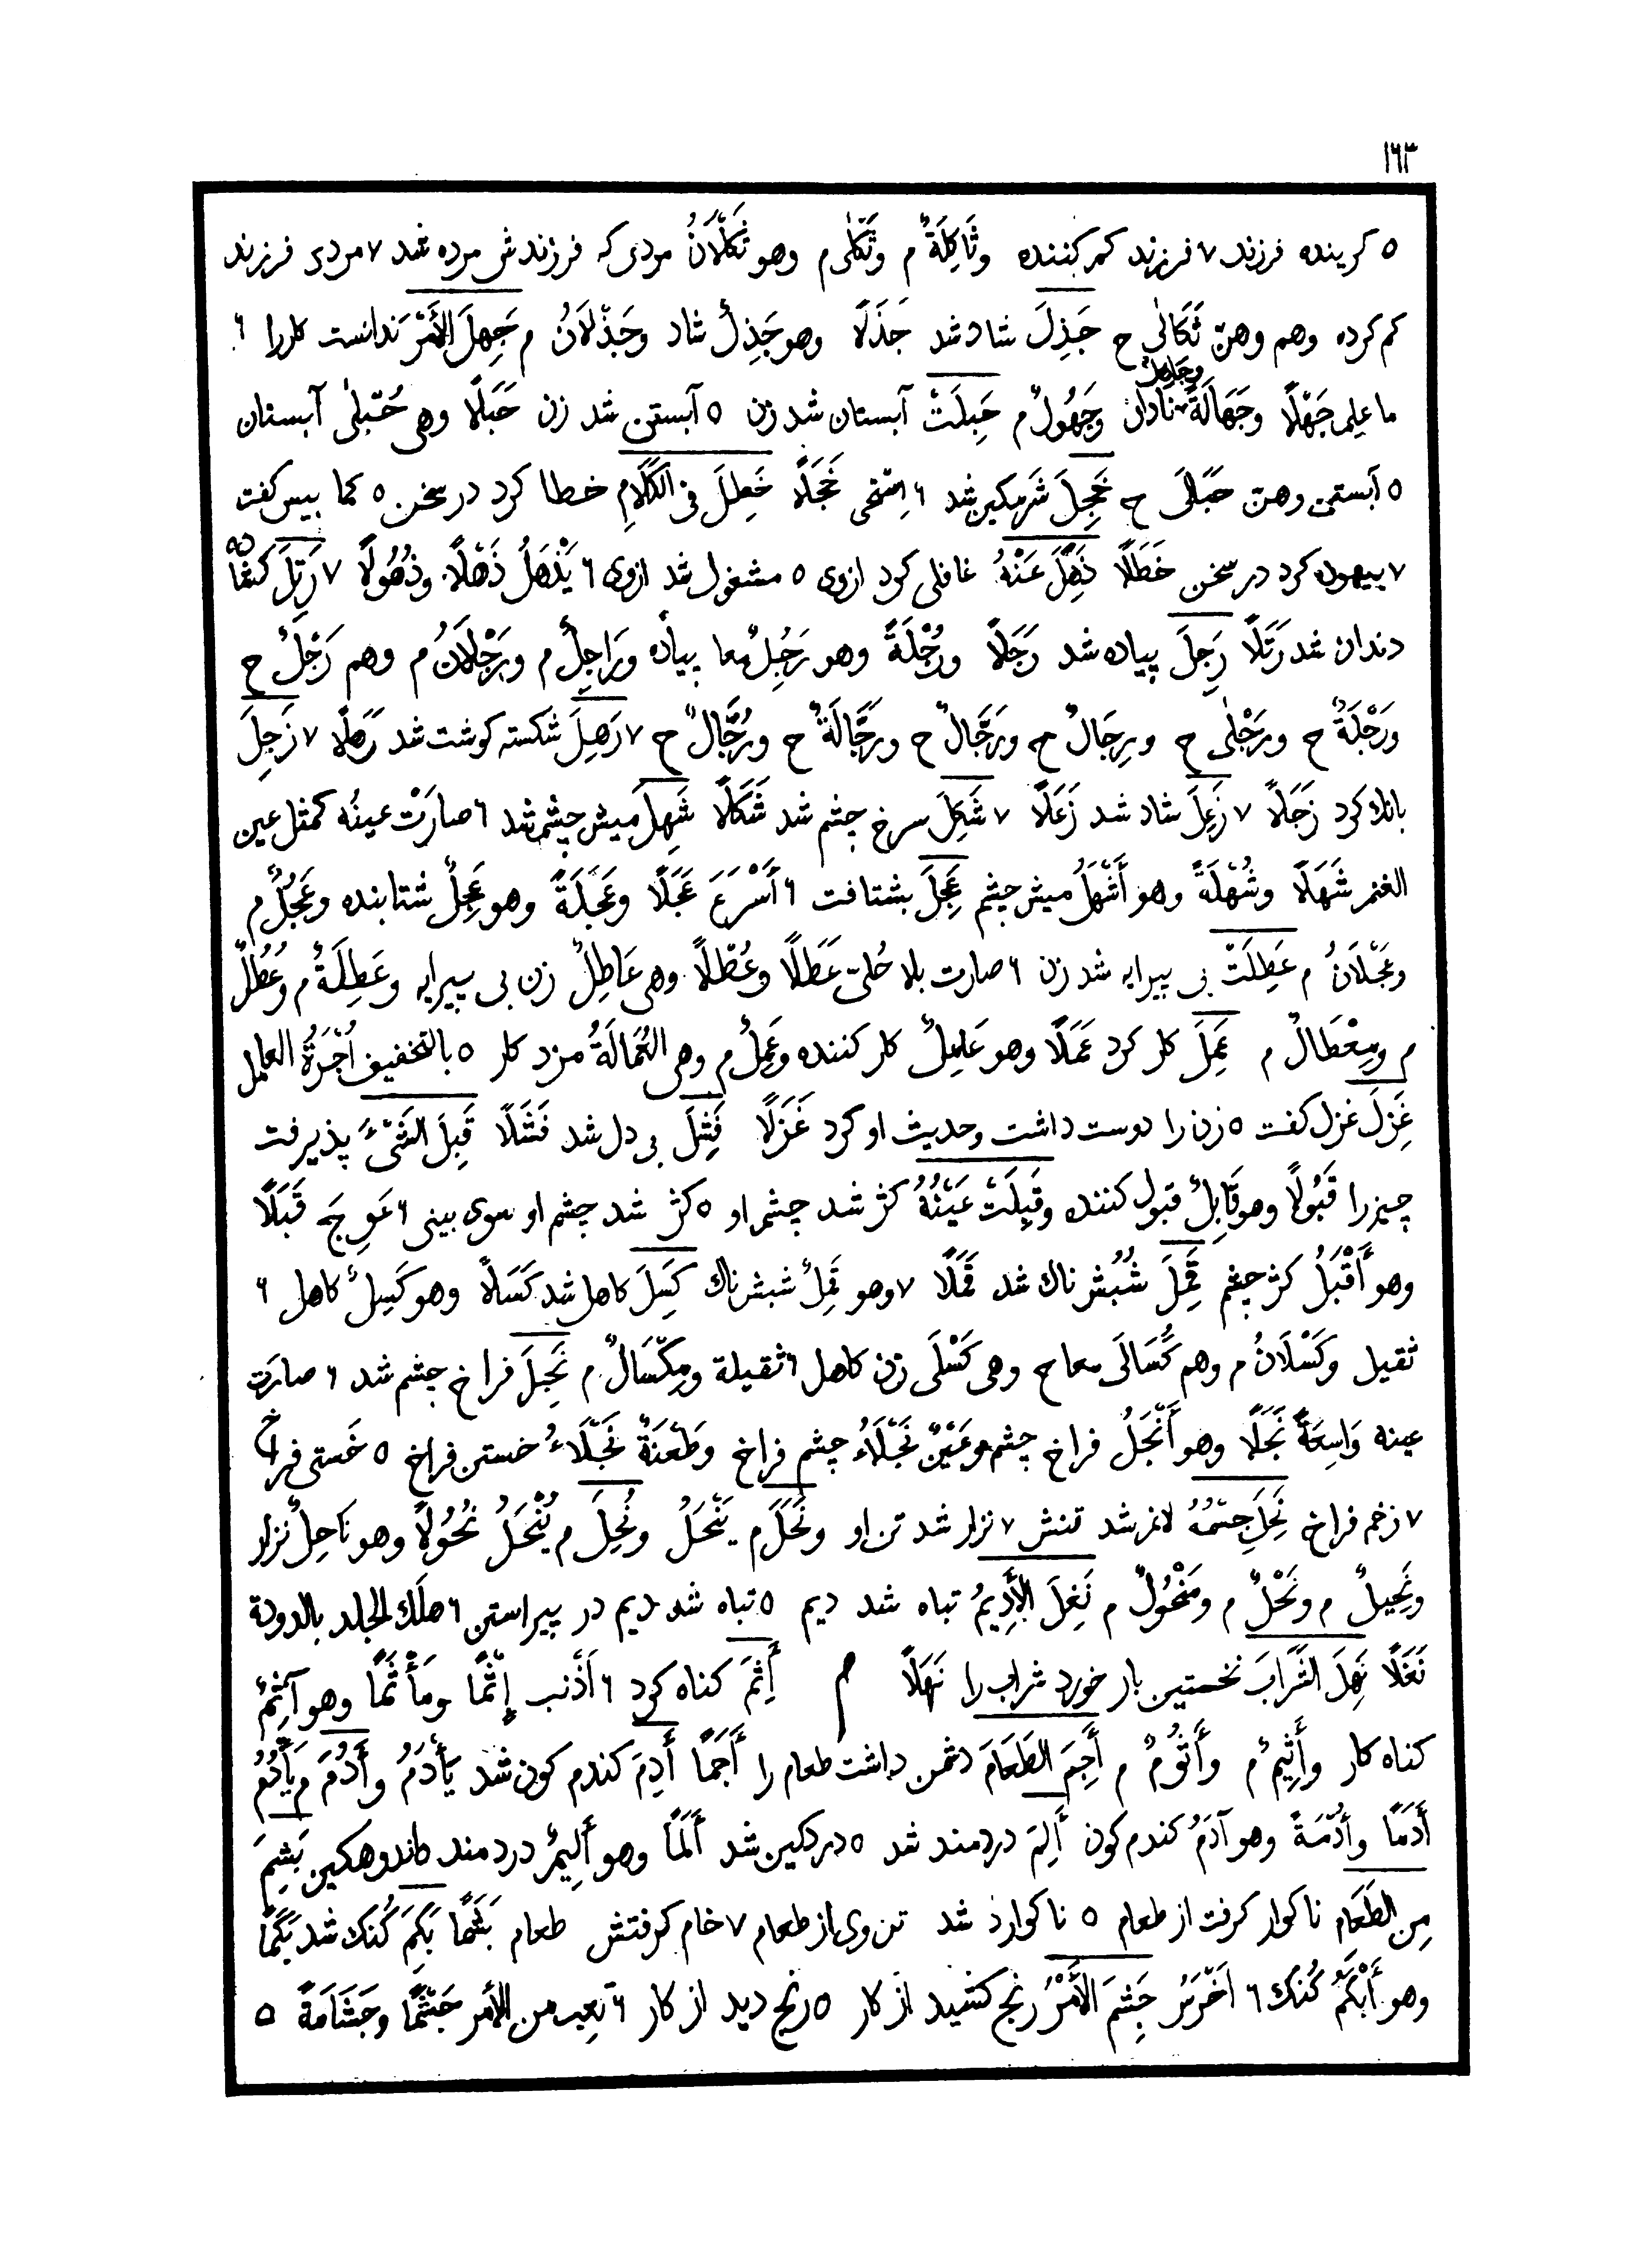 ١٦٣
٥ كرينده فرزند ٧ فرزند كم كننده وثَاكِلَةٌ م وثَكْلٰى م وهو ثَكْلَانُ مردى كه فرزندش مرده شد ٧ مردى فرزند
كم كرده وهم وهنّ ثَكَالٰى ح جَذِلَ شاد شد جَذَلًا وهو جَذِلٌ شاد وجَذْلَانُ م جَهِلَ الأَمْرَ ندانست كاررا ٦
ما علِم جَهْلًا وجَهَالَةً نادان وجَهُولٌ م حَبِلَتْ آبستان شد زن ٥ آبستن شد زن حَبَلًا وهى حُبْلٰى آبستان
٥ آبستن وهنّ حَبَالَى ح خَجِلَ شرمكين شد ٦ استحى خَجَلًا خَطِلَ فى الكَلَامِ خطا كرد در سخن ٥ كما بيس كفت
٧ بيهوده كرد در سخن خَطَلًا ذَهِلَ عَنْهُ غافلى كرد ازوى ٥ مشغول شد ازوى ٦ يَذْهَلُ ذَهْلًا وذُهُولًا ٧ رَتِلَ
دندان شد رَتَلًا رَجِلَ پياده شد رَجَلًا ورُجْلَةً وهو رَجُِلٌ معا پياده ورَاجِلٌ م ورَجْلَانُ م وهم رَجْلٌ ح
ورَجْلَةٌ ح ورَجْلٰى ح ورِجَالٌ ح ورَجَّالٌ ح ورَجَّالَةٌ ح ورُجَّالٌ ح ٧ رَهِلَ شكسته كوشت شد رَهَلًا ٧ زَجِلَ
بانك كرد زَجَلًا ٧ زَعِلَ شاد شد زَعَلًا ٧ شَكِلَ سرخ چشم شد شَكَلًا شَهِلَ ميش چشم شد ٦ صارَتْ عينُه كمثل عين
الغنم شَهَلًا وشُهْلَةً وهو أَشْهَلُ ميش چشم عَجِلَ بشتافت ٦ أَسْرَعَ عَجَلًا وعَجَلَةً وهو عَجِلٌ شتابنده وعَجُلٌ م
وعَجْلَانُ م عَطِلَتْ بى پيرايه شد زن ٦ صارت بلا حُلىّ عَطَلًا وعُطْلًا وهى عَاطِلٌ زن بى پيرايه وعَطِلَةٌ م وعُطُلٌ
م ومِعْطَالٌ م عَمِلَ كار كرد عَمَلًا وهو عَامِلٌ كار كننده وعَمِلٌ م وهى العُمَالَةُ مزد كار ٥ بالتخفيف أُجْرَةُ العامل
غَزِلَ غزل كفت ٥ زن را دوست داشت وحديث او كرد غَزَلًا فَشِلَ بى دل شد فَشَلًا قَبِلَ الشَىْءَ پذيرفت
چيز را قَبُولًا وهو قَابِلٌ قبول كننده وقَبِلَتْ عَيْنُهُ كژ شد چشم او ٥ كژ شد چشم او سوى بينى ٦ عَوِجَ قَبَلًا
وهو أَقْبَلُ كژ چشم قَمِلَ شُبُش ناك شد قَمَلًا ٧ وهو قَمِلٌ شبش ناك كَسِلَ كاهل شد كَسَلًا وهو كَسِلٌ كاهل ٦
ثقيل وكَسْلَانُ م وهم كَُسَالَى معا ح وهى كَسْلَى زن كاهل ٦ ثقيلة ومِكْسَالٌ م نَجِلَ فراخ چشم شد ٦ صارَت
عينه وَاسِعَةً نَجَلًا وهو أَنْجَلُ فراخ چشم وعَيْنٌ نَجْلَاءُ چشم فراخ وطَعْنَةٌ نَجْلَاءُ خستن فراخ ٥ خَستى فراخ
٧ زخم فراخ نَحِلَ جِسْمُهُ لاغر شد تنش ٧ نزار شد تن او ونَحَلَ م يَنْحَلُ ونُحِلَ م يُنْحَلُ نُحُولًا وهو نَاحِلٌ نزار
ونَحِيلٌ م ونَحْلٌ م ومَنْحُولٌ م نَغِلَ الأَدِيمُ تباه شد ديم ٥ تباه شد ديم در پيراستن ٦ هلَك الجلد بالدودة
نَغَلًا نَهِلَ الشَّرَابَ نخستين بار خورد شراب را نَهَلًا م أَثِمَ كناه كرد ٦ أَذْنب إِثْمًا ومَأْثَمًا وهو آثِمٌ
كناه كار وأَثِيمٌ م وأَثُومٌ م أَجِمَ الطَعَامَ دشمن داشت طعام را أَجَمًا أَدِمَ كندم كون شد يَأْدَمُ وأَدُمَ م يَأْدُمُ
أَدَمًا وأُدْمَةً وهو آدَمُ كندم كون أَلِمَ دردمند شد ٥ دردكين شد أَلَمًا وهو أَلِيمٌ دردمند بَشِمَ
مِن الطَعَام ناكوار كرفت از طعام ٥ ناكوارد شد تن وى از طعام ٧ خام كرفتش طعام بَشَمًا بَكِمَ كُنك شد بَكَمًا
وهو أَبْكَمُ كُنك ٦ أَخْرَسُ جَشِمَ الأَمْرَ رنج كشيد از كار ٥ رنج ديد از كار ٦ تعِب من الأمر جَشْمًا وجَشَامَةً ٥